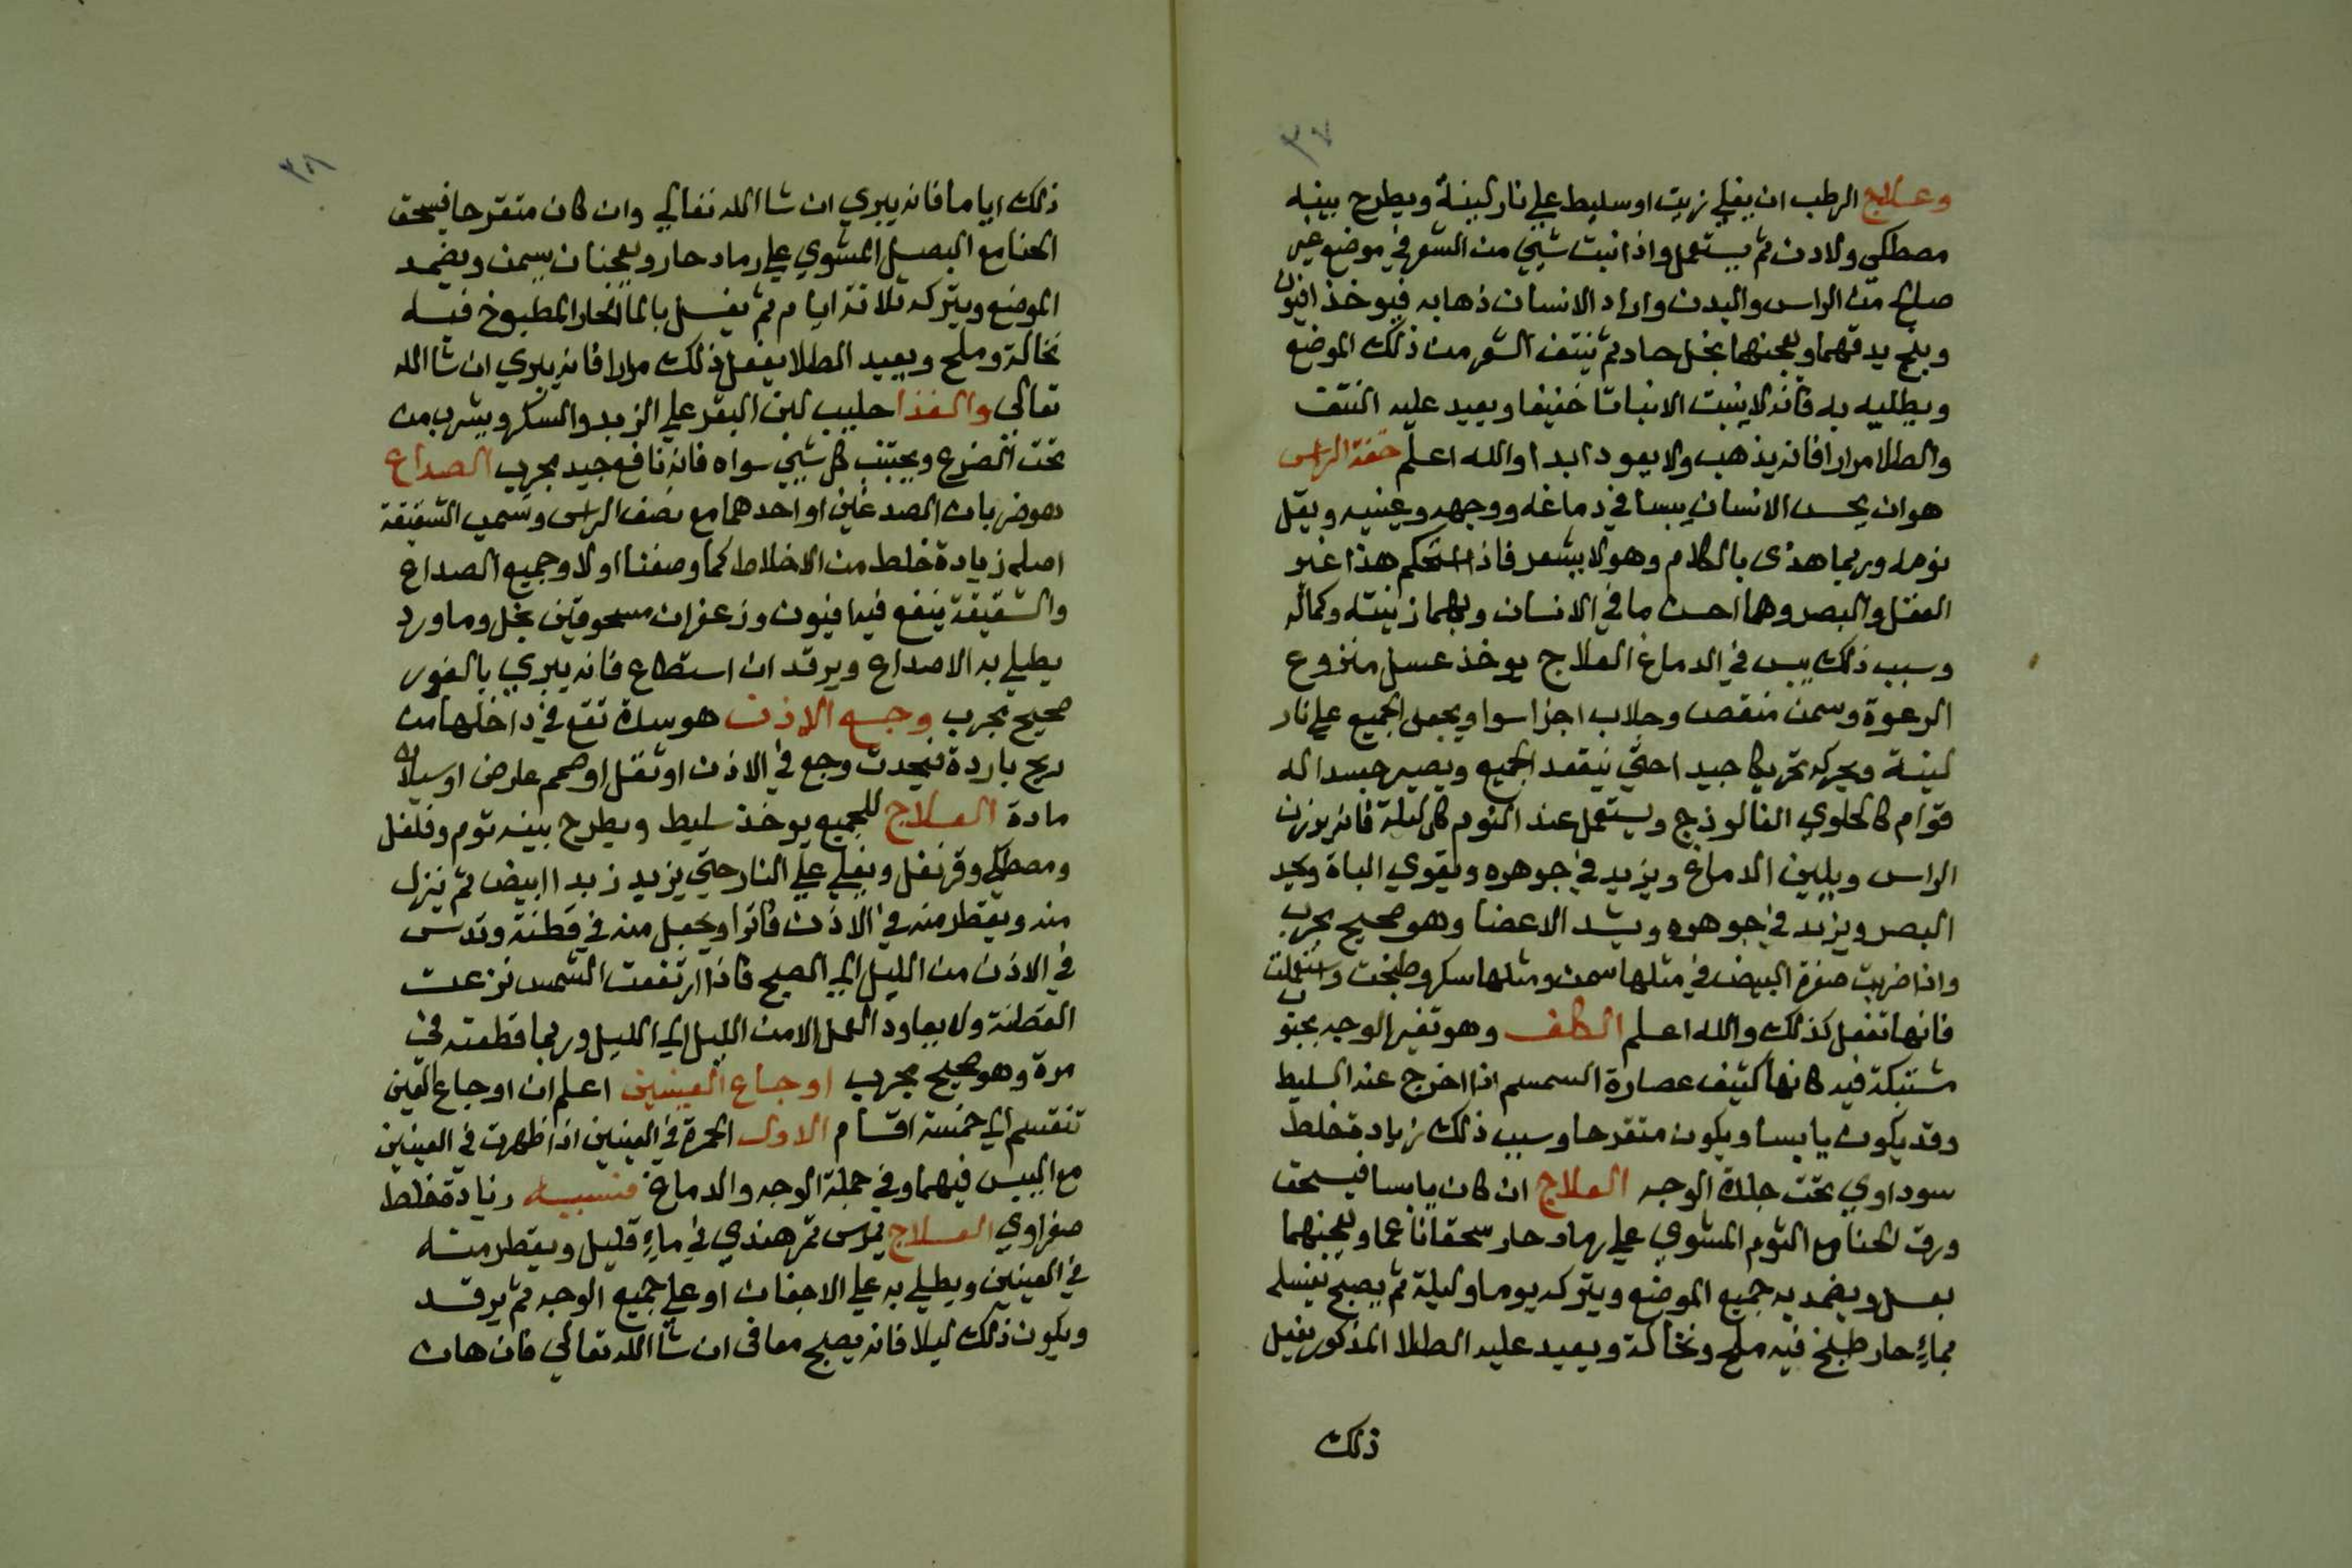 ٣٧
وعلاج الرطب ان يغلي زيت او سليط علي نار لينة ويطرح بينه
مصطكي ولادن ثم يستعمل واذا نبت شيي من الشعر في موضع غير
صالح من الراس والبدن واراد الانسان ذهابه فيوخذ افيون
وبنج يدقهما ويعجنهما بخل حاد ثم ينتف الشعر من ذلك الموضع
ويطليه به فانه لا ينبت الا نباتا خفيفا ويعيد عليه النتف
والطلا مرارا فانه يذهب ولا يعود ابدا والله اعلم خفة الراس
هو ان يحس الانسان يبسا في دماغه ووجهه وعينيه ويقل
نومه وربما هذى بالكلام وهو لا يشعر فاذا استحكم هذا غير
العقل والبصر وهما احسن ما في الانسان وبهما زينته وكماله
وسبب ذلك يبس في الدماغ العلاج يوخذ عسل منزوع
الرعوة وسمن منقص وجلاب اجزا سوا ويجعل الجميع علي نار
لينة ويحركه تحريكا جيدا حتي ينعقد الجميع ويصير جسدا له
قوام كالحلوي الفالوذج ويستعمل عند النوم كل ليلة فانه يوزن
الراس ويلين الدماغ ويزيد في جوهره ويقوي الباة ويحد
البصر ويزيد في جوهره ويشد الاعضا وهو صحيح مجرب
واذا ضربت صفرة البيض في مثلها سمن ومثلها سكر وطبخت واستعملت
فانها تفعل كذلك والله اعلم الكلف وهو تغير الوجه بحبوب
مشتبكة فيه كانها كثيف عصارة السمسم اذا اخرج عنه السليط
وقد يكون يابسا ويكون متقرحا وسبب ذلك زيادة خلط
سوداوي تحت جلدة الوجه العلاج ان كان يابسا فيسحق
ورق الحنا مع الثوم المشوي علي رماد حار سحقا ناعما ويعجنهما
بعسل ويضمد به جميع الموضع ويتركه يوما وليلة ثم يصبح يغسله
بماءٍ حار طبخ فيه ملح ونخالة ويعيد عليه الطلا المذكور يفعل
ذلك
٣٨
ذلك اياما فانه يبري ان شا الله تعالي وان كان متقرحا فيسحق
الحنا مع البصل المشوي علي رماد حار ويعجنان بسمن ويضمد
الموضع ويتركه ثلاثة ايام ثم يغسل بالما الحار المطبوخ فيه
نخالة وملح ويعيد الطلا يفعل ذلك مرارا فانه يبري ان شا الله
تعالي والغذا حليب لبن البقر علي الزبد والسكر ويشرب من
تحت الضرع ويجتنب كل شيي سواه فانه نافع جيد مجرب الصداع
هو ضربان الصدغين او احدهما مع نصف الراس وسمي الشقيقة
اصله زيادة خلط من الاخلاط كما وصفنا اولا وجميع الصداع
والشقيقة ينفع فيه افيون وزعفران مسحوقين بخل وماورد
يطلي به الاصداع ويرقد ان استطاع فانه يبري بالفور
صحيح مجرب وجع الاذن هو سدة تقع في داخلها من
ريح باردة فيحدث وجع في الاذن او ثقل او صمم عارض او سيلان
مادة العلاج للجميع يوخذ سليط ويطرح بينه ثوم وفلفل
ومصطكي وقرنفل ويغلي علي النار حتي يزيد زبدا ابيض ثم ينزل
منه ويقطر منه في الاذن فاترا ويجعل منه في قطنة وتدس
في الاذن من الليل الي الصبح فاذا ارتفعت الشمس نزعت
القطنة ولا يعاود العمل الا من الليل الي الليل وربما قطعته في
مرة وهو صحيح مجرب اوجاع العينين اعلم ان اوجاع العين
تنقسم الي خمسة اقسام الاول الحمرة في العينين اذا ظهرت في العينين
مع اليبس فيهما وفي جملة الوجه والدماغ فسببه زيادة خلط
صفراوي العلاج يمرس تمر هندي في ماءٍ قليل ويقطر منه
في العينين ويطلي به علي الاجفان او علي جميع الوجه ثم يرقد
ويكون ذلك ليلا فانه يصبح معافى ان شا الله تعالي فان هان